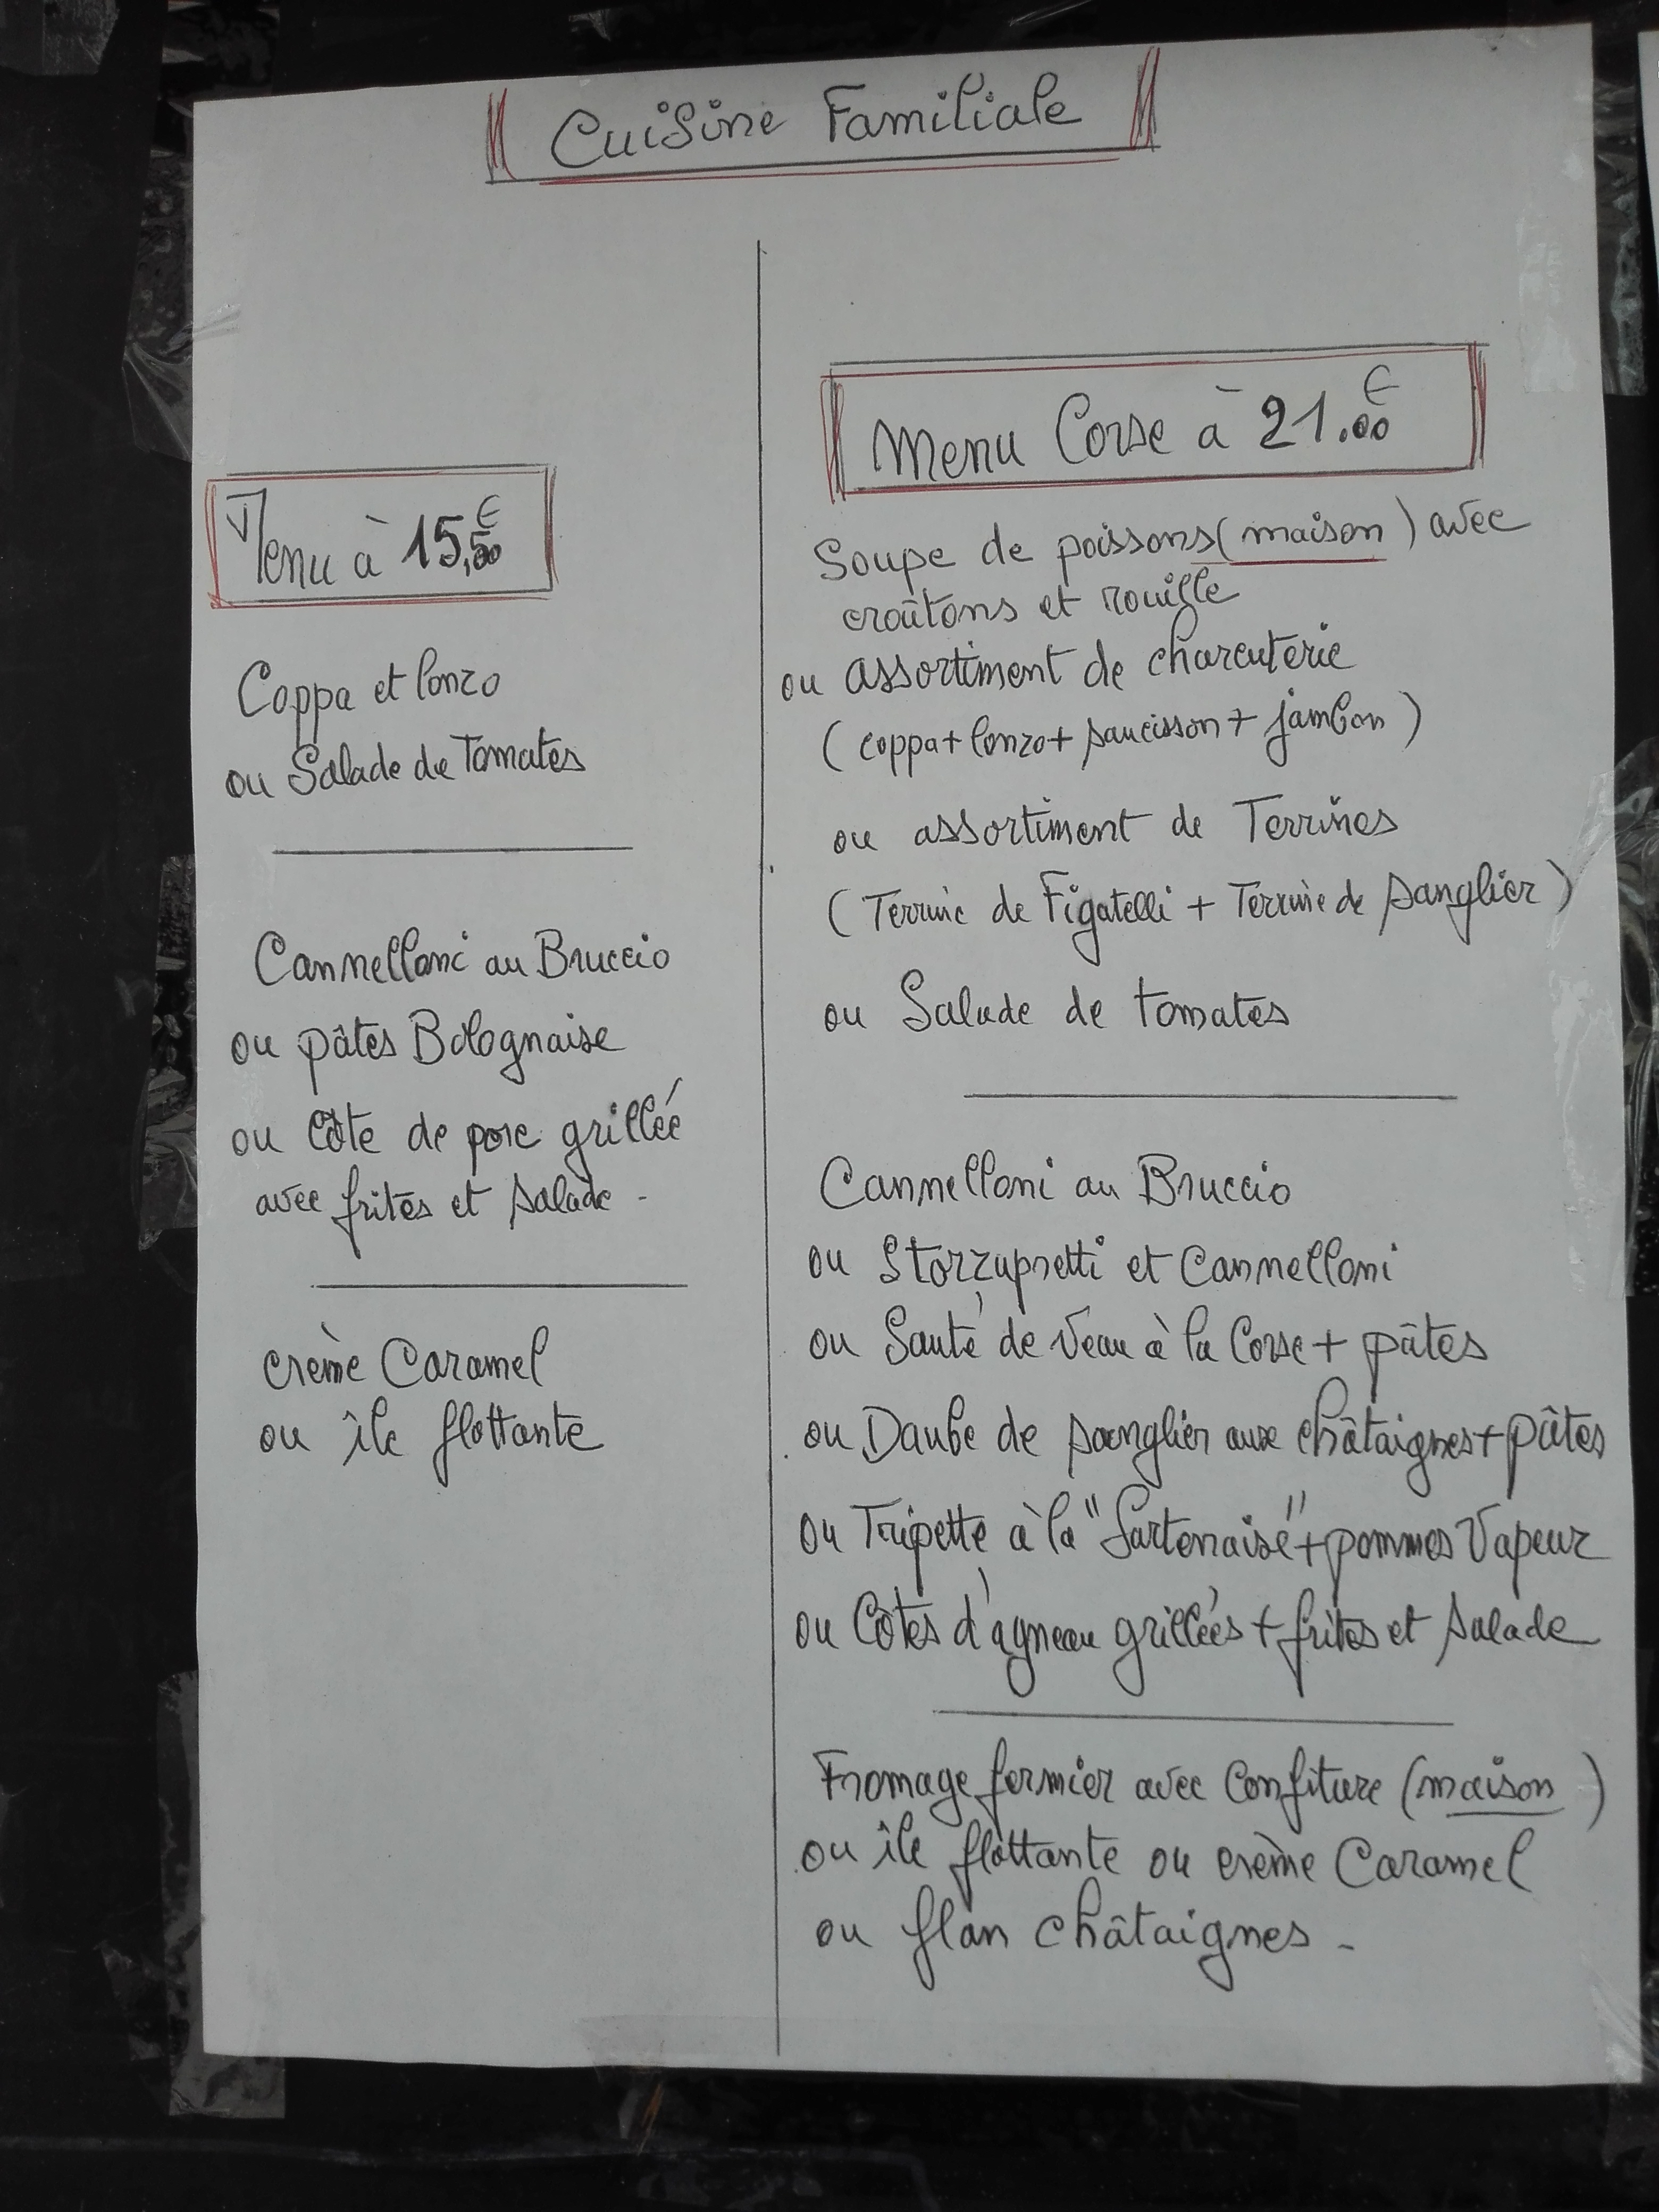 Cuisine Familiale
Menu à 15,50€
Coppa et lonzo
ou Salade de Tomates
Cannelloni au Bruccio
ou pâtes Bolognaise
ou Côte de porc grillée
avec frites et salade -
crème Caramel
ou île flottante
Menu Corse à 21.00€
Soupe de poissons (maison) avec
croûtons et rouille
ou assortiment de charcuterie
(coppa + lonzo + saucisson + jambon)
ou assortiment de Terrines
(Terrine de Figatelli + Terrine de sanglier)
ou Salade de tomates
Cannelloni au Bruccio
ou Storzapretti et Cannelloni
ou Sauté de Veau à la Corse + pâtes
ou Daube de sanglier aux châtaignes + pâtes
ou Tripette à la "Sartenaise" + pommes Vapeur
ou Côtes d'agneau grillées + frites et salade
Fromage fermier avec Confiture (maison)
ou île flottante ou crème Caramel
ou flan châtaignes -